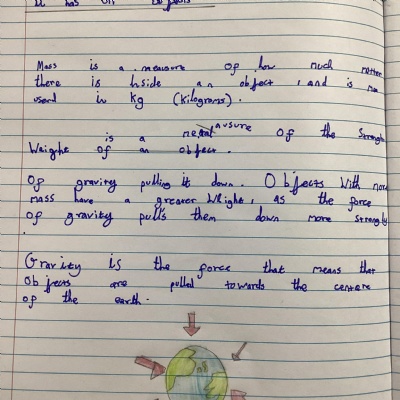 it has on objects
Mass is a measure of how much matter
there is inside an object, and is
used in kg (kilograms).
is a measure of the strength
Weight of an object.
Of gravity pulling it down. Objects with more
mass have a greater Weight, as the force
of gravity pulls them down more strongly
.
Gravity is the force that means that
objects are pulled towards the centere
of the earth.